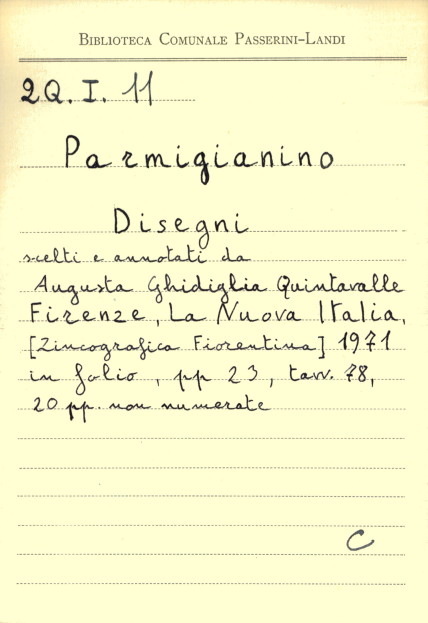 BIBLIOTECA COMUNALE PASSERINI-LANDI
2Q. I. 11
Parmigianino
Disegni
scelti e annotati da
Augusta Ghidiglia Quintavalle
Firenze, La Nuova Italia,
[Zincografica Fiorentina] 1971
in folio, pp 23, tavv. 78,
20 pp. non numerate
C